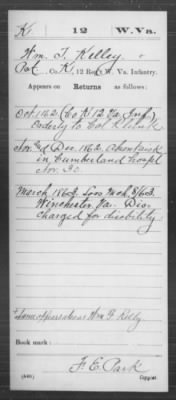 K | 12 | W. Va.
Wm. T. Kelley
Pvt., Co. K, 12 Reg't W. Va. Infantry.
Appears on Returns as follows:
Oct. 1862 (Co K 12 Va Inf.)
Orderly to Col
Nov. and Dec. 1862. Absent sick
in Cumberland hospl
Nov. 30
March 1863. Loss Mch. 8/63.
Winchester, Va. Dis-
charged for disability
Name appears also as Wm F. Kelly
Book mark:
F. E. Park
(546) Copyist.